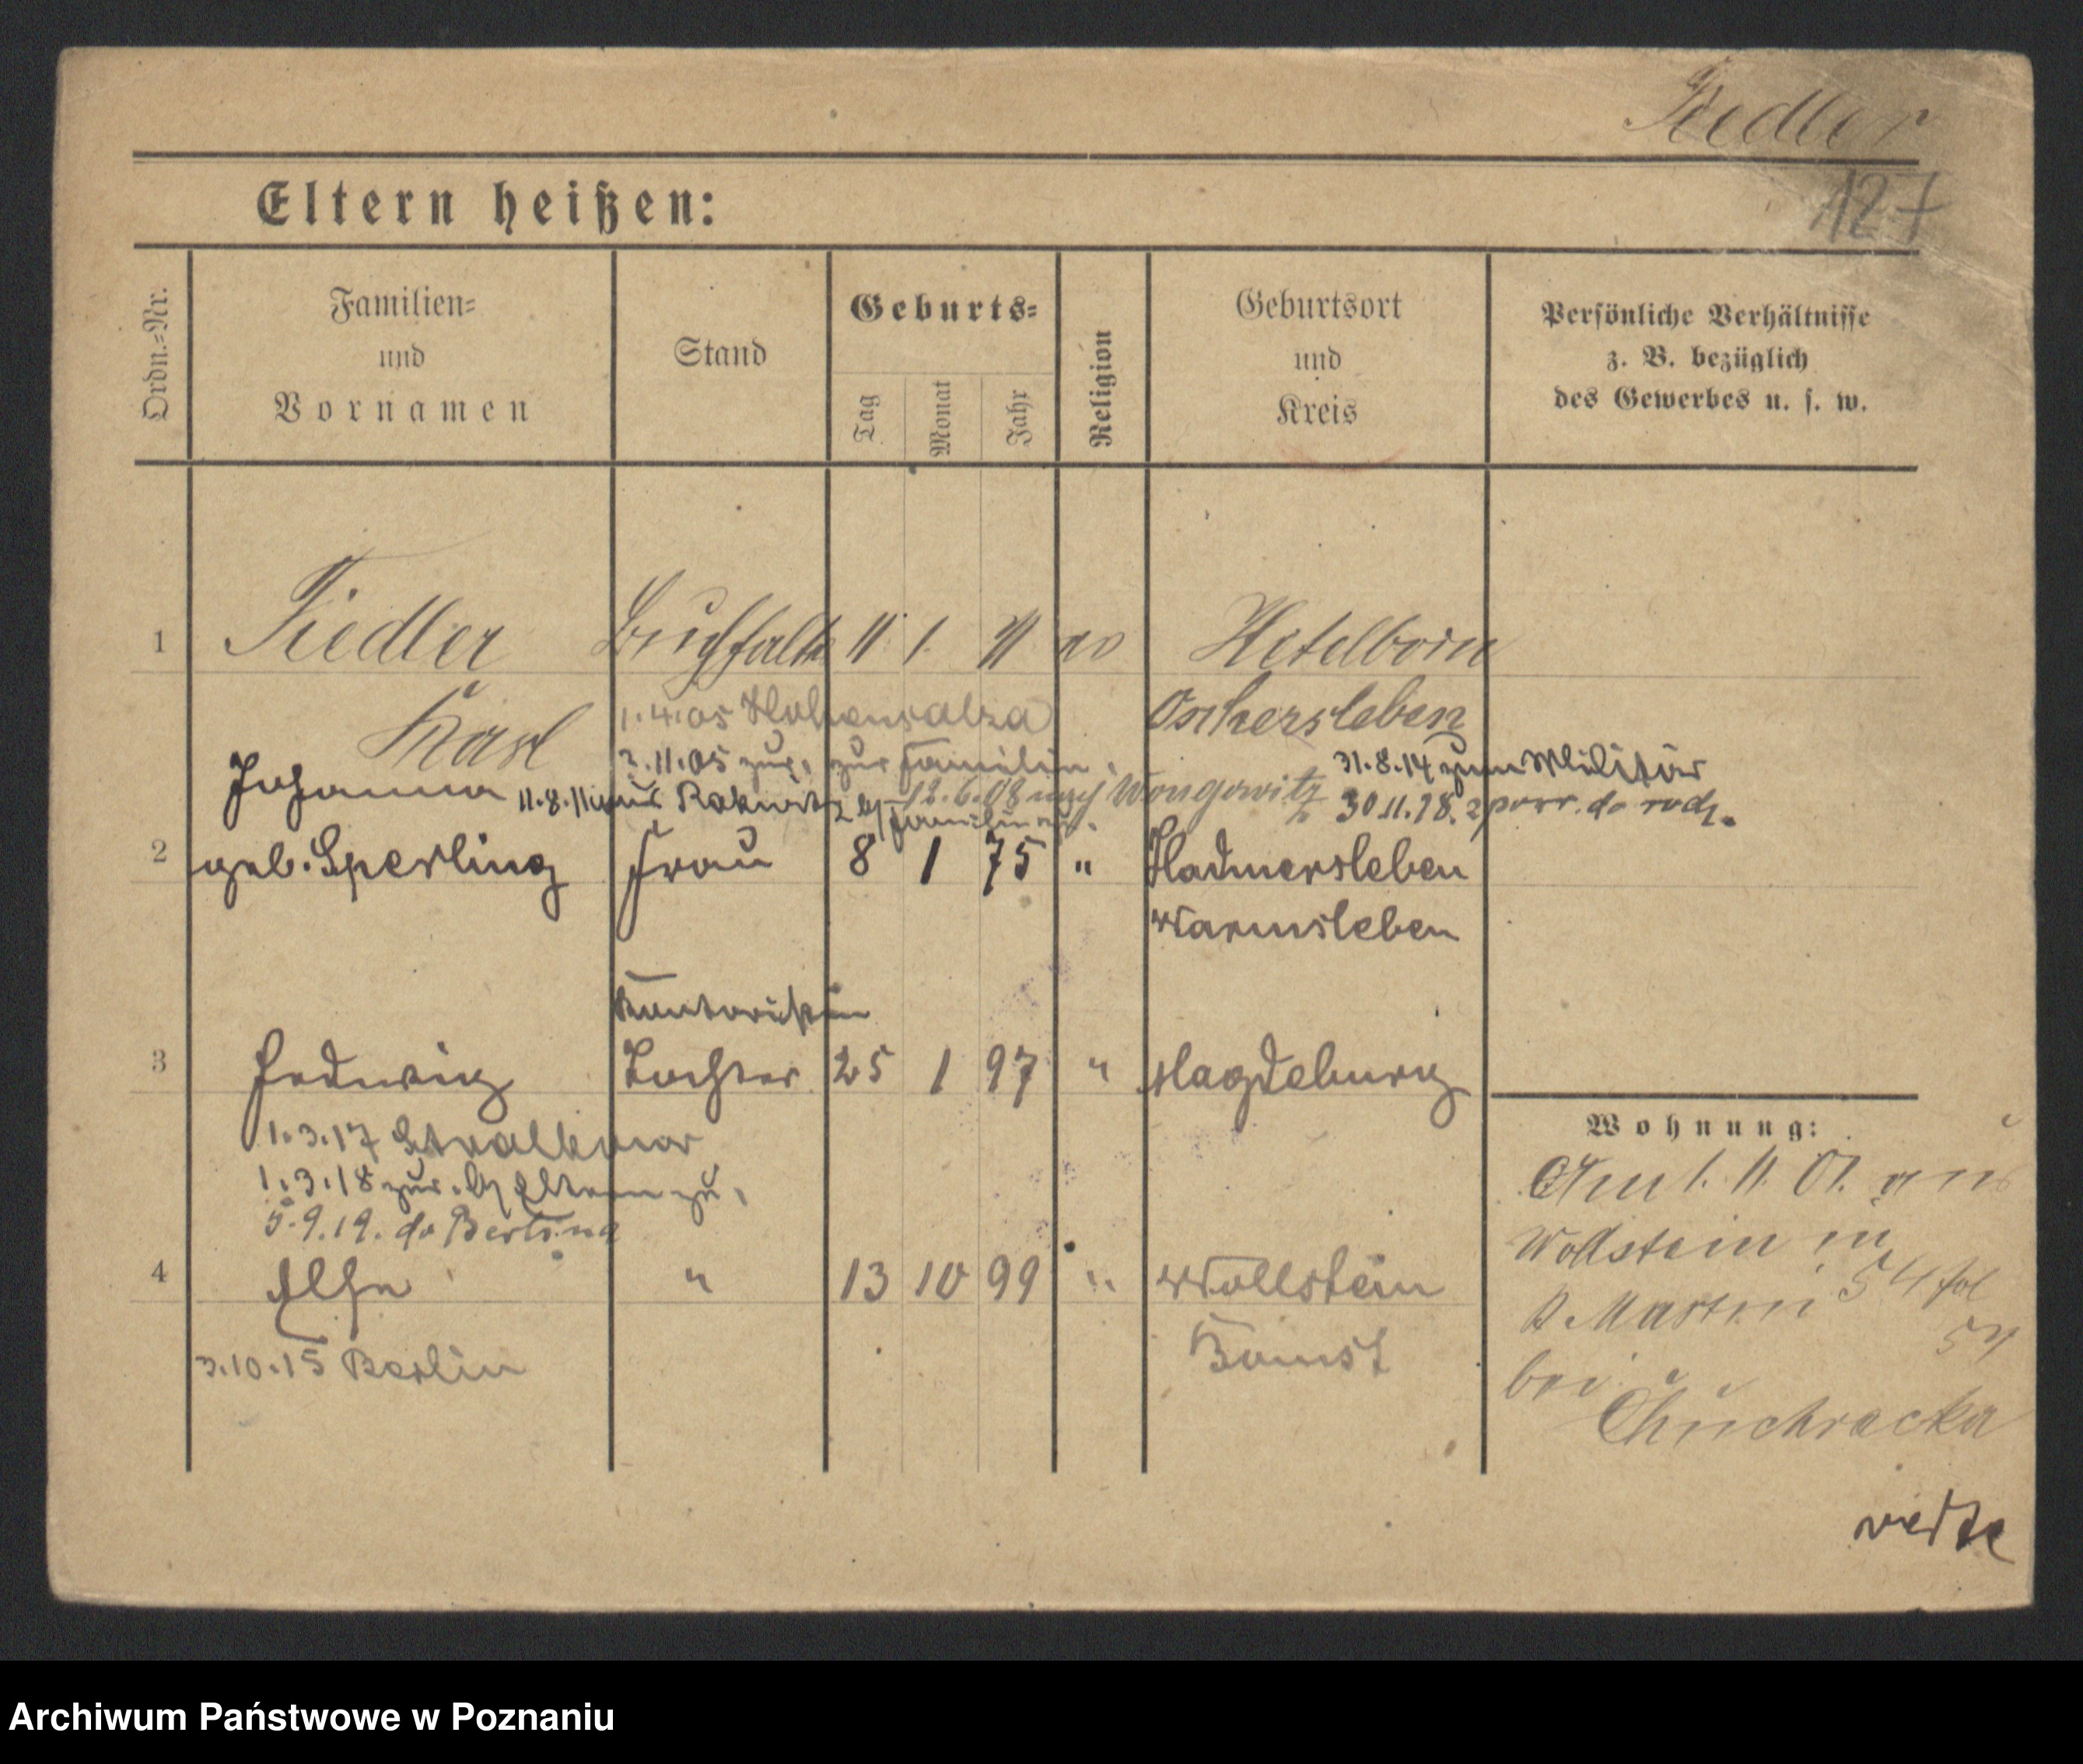 Fiedler
127
Eltern heißen:
Ordn.-Nr.
Familien-
und
Vornamen
Stand
Geburts-
Tag
Monat
Jahr
Religion
Geburtsort
und
Kreis
Persönliche Verhältnisse
z. B. bezüglich
des Gewerbes u. s. w.
1 Fiedler Buchhalter 11 1. 71 Hetelborn
Karl 1.4.05 Hohensalza Oschersleben
2.11.05 zur. zur Familie. 31.8.14 zum Militär
Johanna 11.8.11 aus Rakwitz 12.6.08 nach Wongrowitz 30.11.18. powr. do rodz.
2 geb. Sperling Frau 8 1 75 " Hadmersleben
Wanzleben
Kontoristin
3 Hedwig Tochter 25 1 97 " Magdeburg
Wohnung:
1.3.17
1.3.18 zur. Eltern zu.
5.9.19. do Berlina
Am 1. 11. 01. aus
Wollstein in
4 Else " 13 10 99 " Wollstein
S Martin 54
3.10.15 Berlin Bomst
bei
Chuchracka
verte
Archiwum Państwowe w Poznaniu